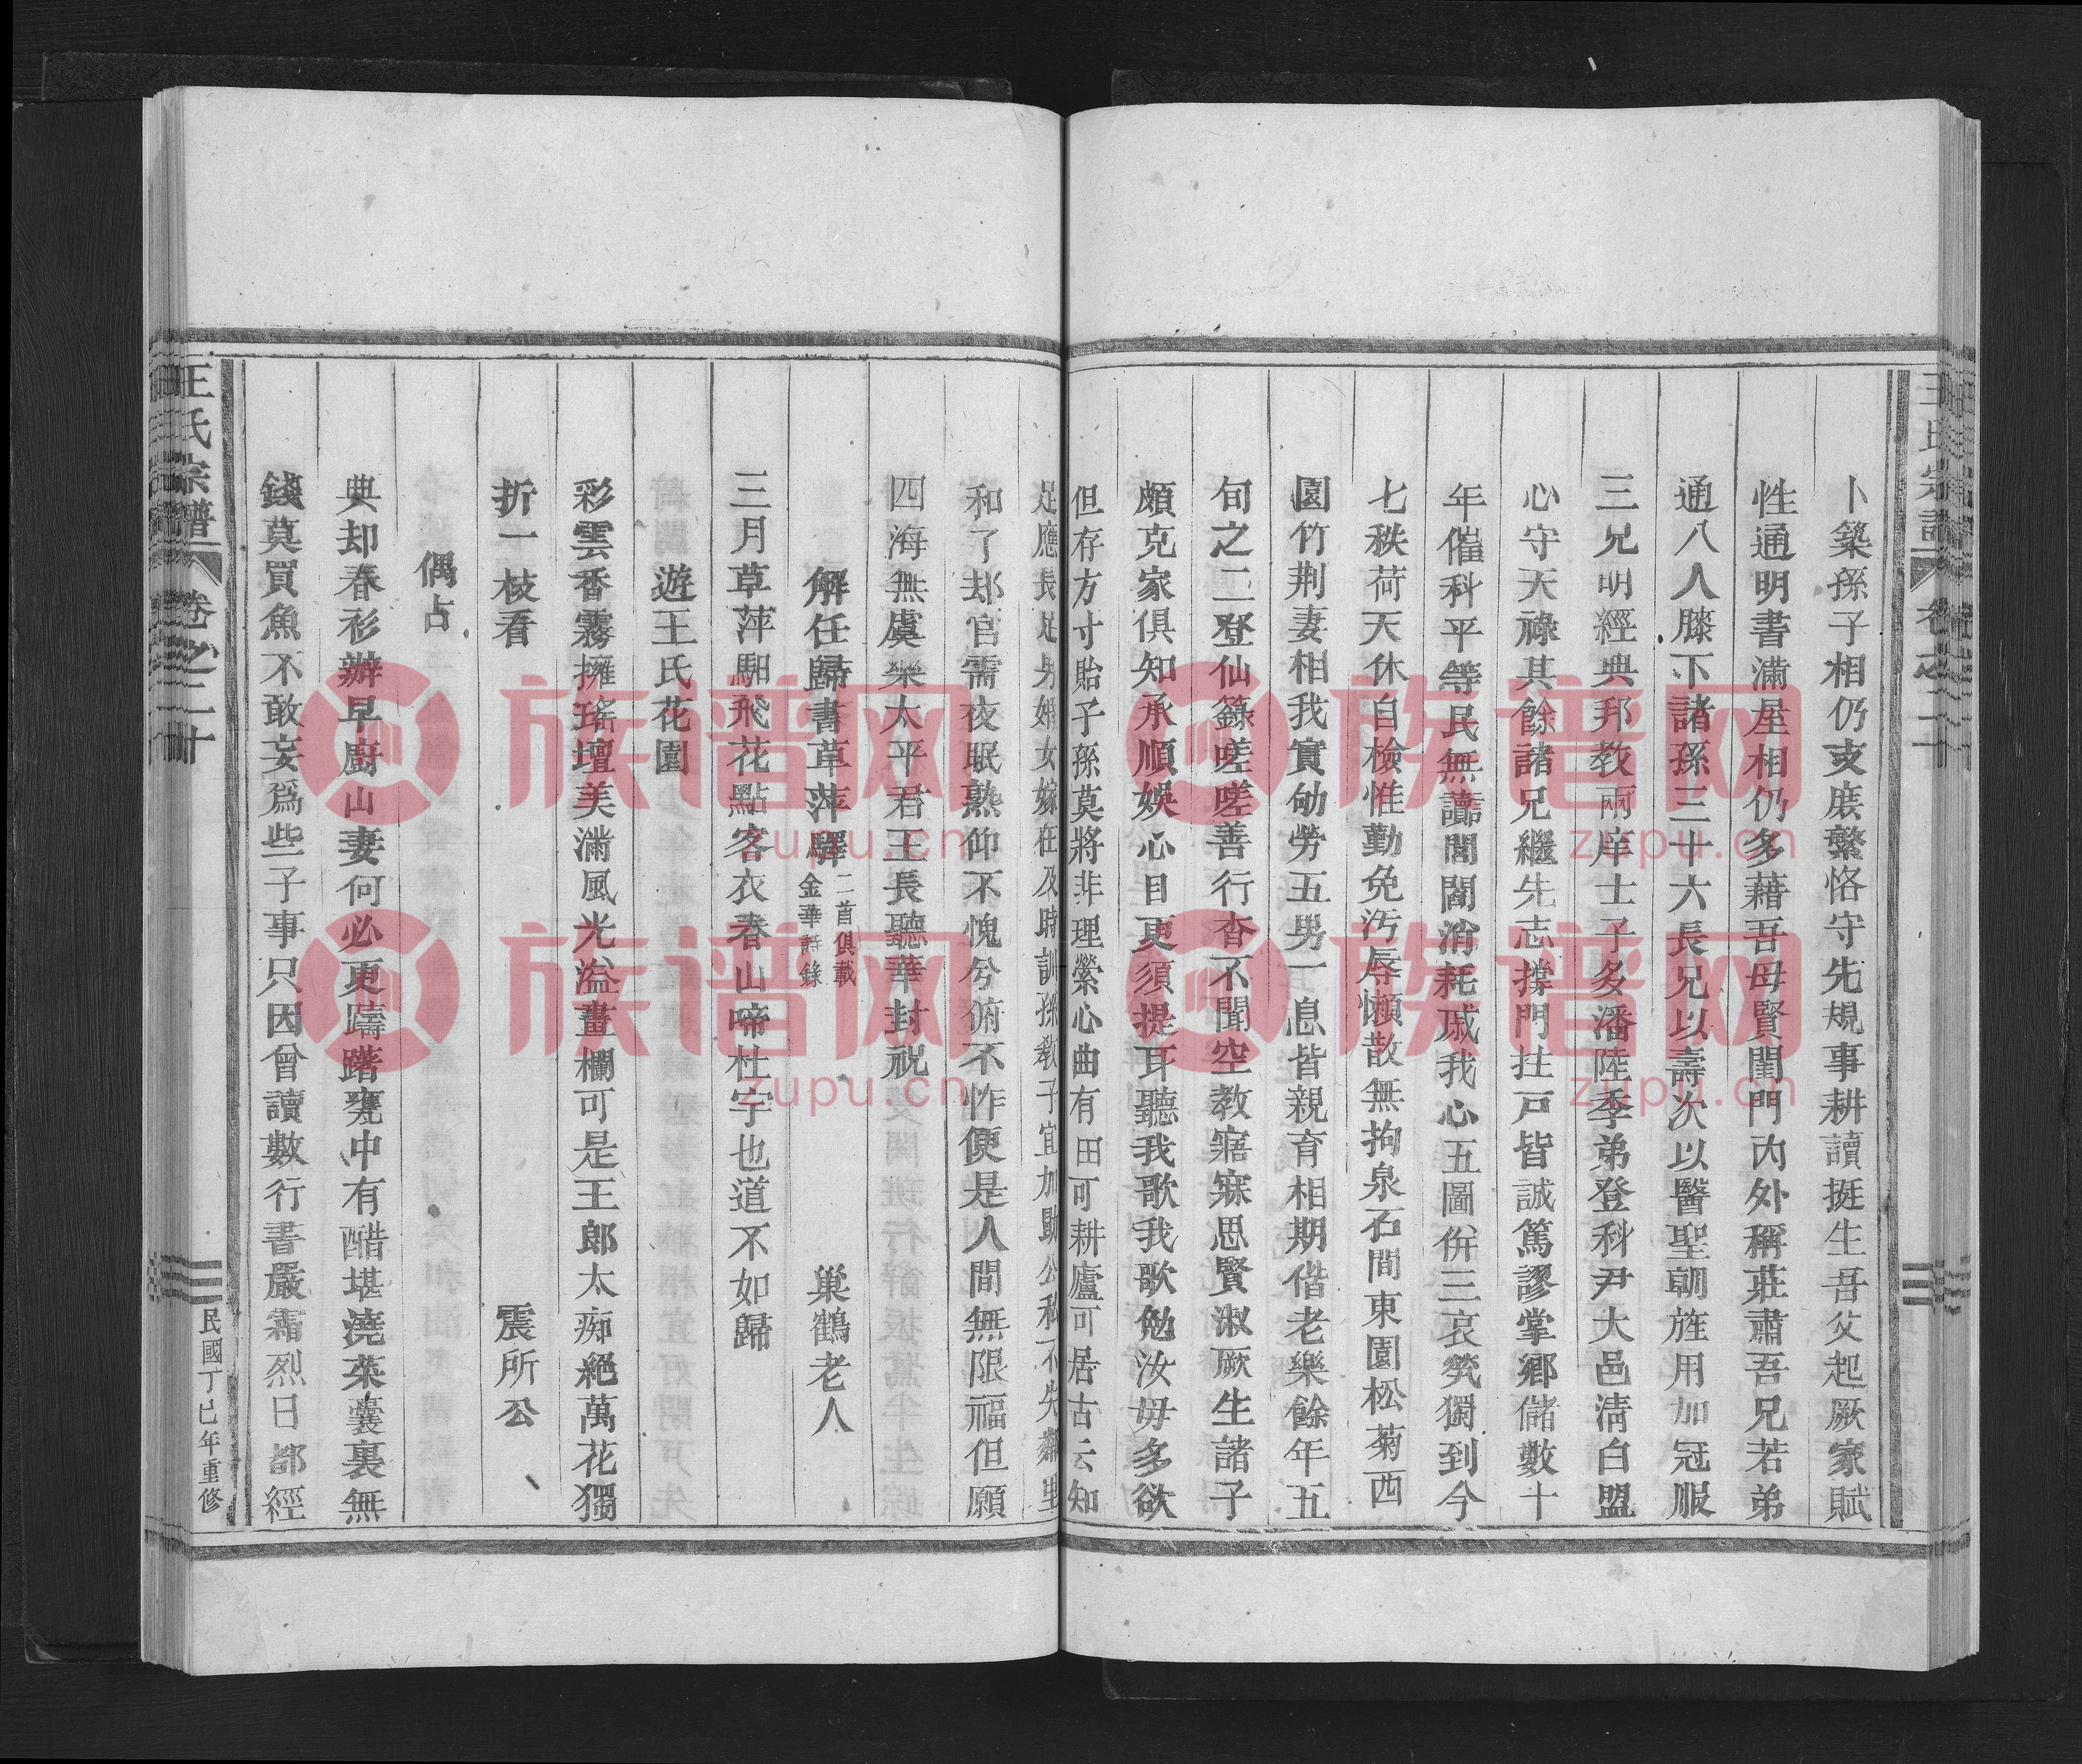 卜築孫子相仍支庶繁恪守先規事耕讀挺生吾父起厥家賦
性通明書滿屋相仍多藉吾母賢閨門內外稱莊肅吾兄若弟
通八人膝下諸孫三十六長兄以壽次以醫聖朝旌用加冠服
三兄明經典邦教兩庠士子多潘陸季弟登科尹大邑清白盟
心守天祿其餘諸兄繼先志撐門拄戸皆誠篤謬掌鄉儲數十
年催科平等民無讟閭閻消耗戚我心五圖併三哀煢獨到今
七秩荷天休自檢惟勤免汚辱懶散無拘泉石間東園松菊西
園竹荆妻相我實劬勞五男一息皆親育相期偕老樂餘年五
旬之二登仙籙嗟嗟善行杳不聞空教寤寐思賢淑厥生諸子
頗克家俱知承順娛心目更須提耳聽我歌我歌勉汝毋多欲
但存方寸貽子孫莫將非理縈心曲有田可耕廬可居古云知
足應長足男婚女嫁在及時訓孫教子宜加勖公私不失鄰里
和了却官需夜眠熟仰不愧兮俯不怍便是人間無限福但願
四海無虞樂太平君王長聽華封祝
解任歸書草萍驛 二首俱載金華詩錄 巢鶴老人
三月草萍馹飛花點客衣春山啼杜宇也道不如歸
遊王氏花園
彩雲香霧擁瑤壇美滿風光溢畫欄可是王郎太痴絕萬花獨
折一枝看 震所公
偶占
典却春衫辦早廚山妻何必更躊躇甕中有醋堪澆菜囊裏無
錢莫買魚不敢妄爲些子事只因曾讀數行書嚴霜烈日都經
王氏宗譜 卷之二十 民國丁巳年重修
王氏宗譜 卷之二十
族谱网
zupu.cn
族谱网
zupu.cn
族谱网
zupu.cn
族谱网
zupu.cn